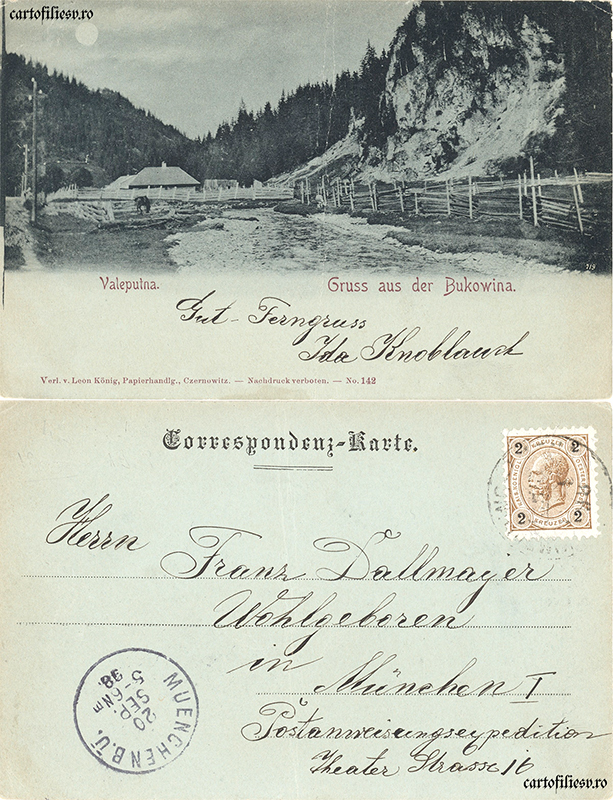 cartofiliesv.ro
719
Valeputna.
Gruss aus der Bukowina.
Gut-Ferngruss
Ida Knoblauch
Verl. v. Leon König, Papierhandlg., Czernowitz. — Nachdruck verboten. — No. 142
Correspondenz-Karte.
2 KREUZER 2
2 KREUZER 2
Herrn
Franz Dallmayer
Wohlgeboren
in
München I
Postanweisungsexpedition
Theater Strasse 16
MUENCHEN B.Ü.
20
SEP.
5-6 NM
98.
cartofiliesv.ro